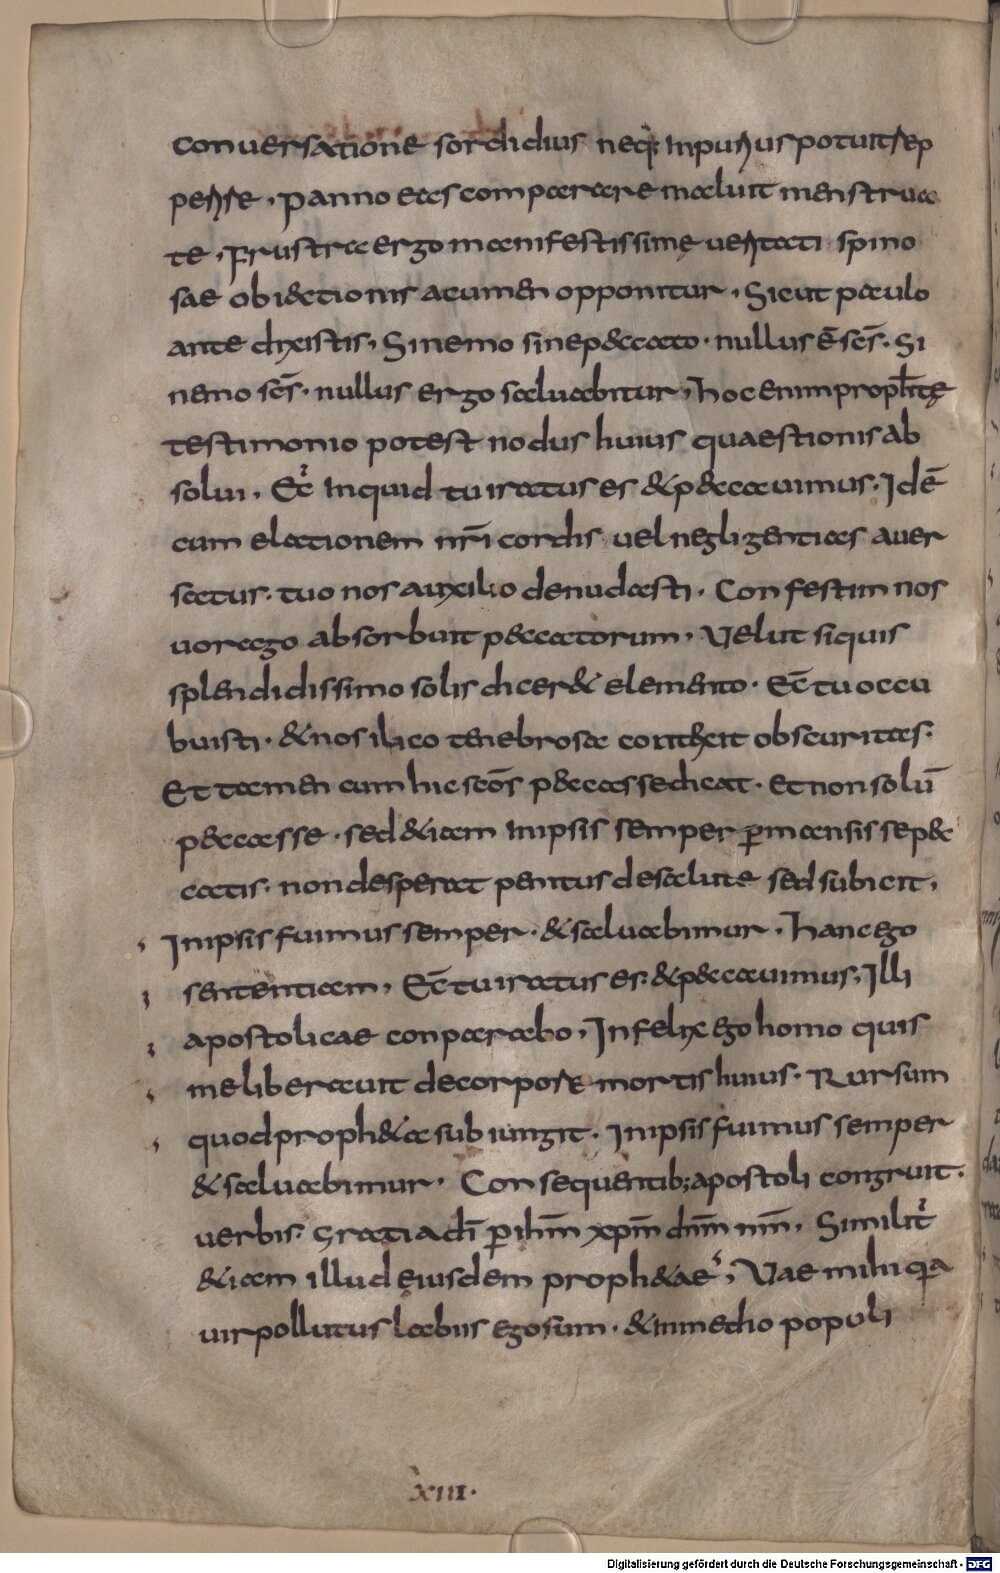 conuersatione sordidius neq; inpurius potuit rep
perire. panno eas comparare maluit menstrua
te. Frustra ergo manifestissimę ueritati spino
sae obiectionis acumen opponitur. Sicut paulo
ante dixistis. Si nemo sine peccato. nullus ē scs̄. Si
nemo scs̄. nullus ergo saluabitur. hoc enim prophetę
testimonio potest nodus huius quaestionis ab
solui. Ecc̄ inquid tu iratus es & peccauimus. Idē
cum elationem nr̄i cordis uel negligentias auer
satus. tuo nos auxilio denudasti. Confestim nos
uorago absorbuit peccatorum. Velut siquis
splendidissimo solis dicer& elemento. Ecc̄ tu occu
buisti. & nos ilico tenebrosa contexit obscuritas.
Et tamen cum hic scōs peccasse dicat. et non solū
peccasse. sed & iam in ipsis semper p̄mansisse pec
catis. non desperat penitus de salute sed subicit,
In ipsis fuimus semper. & saluabimur. hanc ego
sententiam. Ecc̄ tu iratus es. & peccauimus. Illi
apostolicae conparabo. Infelix ego homo quis
me liberauit de corpore mortis huius. Rursum
quod proph&a subiungit. In ipsis fuimus semper
& saluabimur. Consequentib; apostoli congruit.
uerbis. gratia dī p̄ ihm̄ xpm̄ dnm̄ nm̄. Similit̄
& iam illud eiusdem proph&ae. Vae mihi qia
uir pollutus labiis ego sum. & in medio populi
xiii.
Digitalisierung gefördert durch die Deutsche Forschungsgemeinschaft - DFG